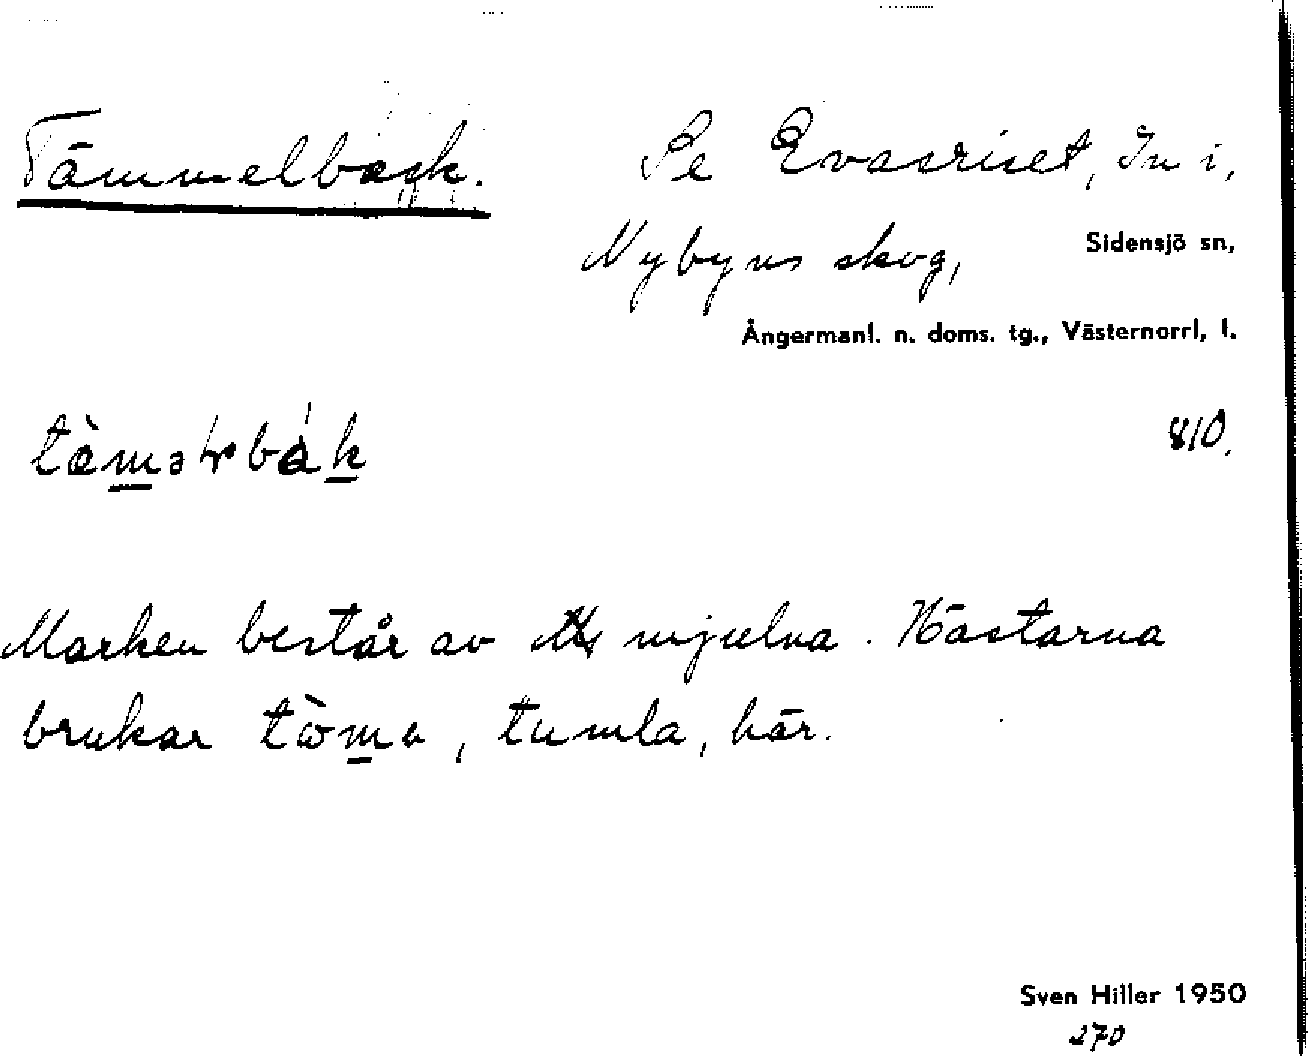 Tämmelback.
Se Evasriset, In i,
Nybyns skog,
Sidensjö sn,
Ångermanl. n. doms. tg., Västernorrl, l.
810.
Marken består av mjuelna. Hästarna
brukar tò̀ma, tumla, här.
Sven Hiller 1950
270